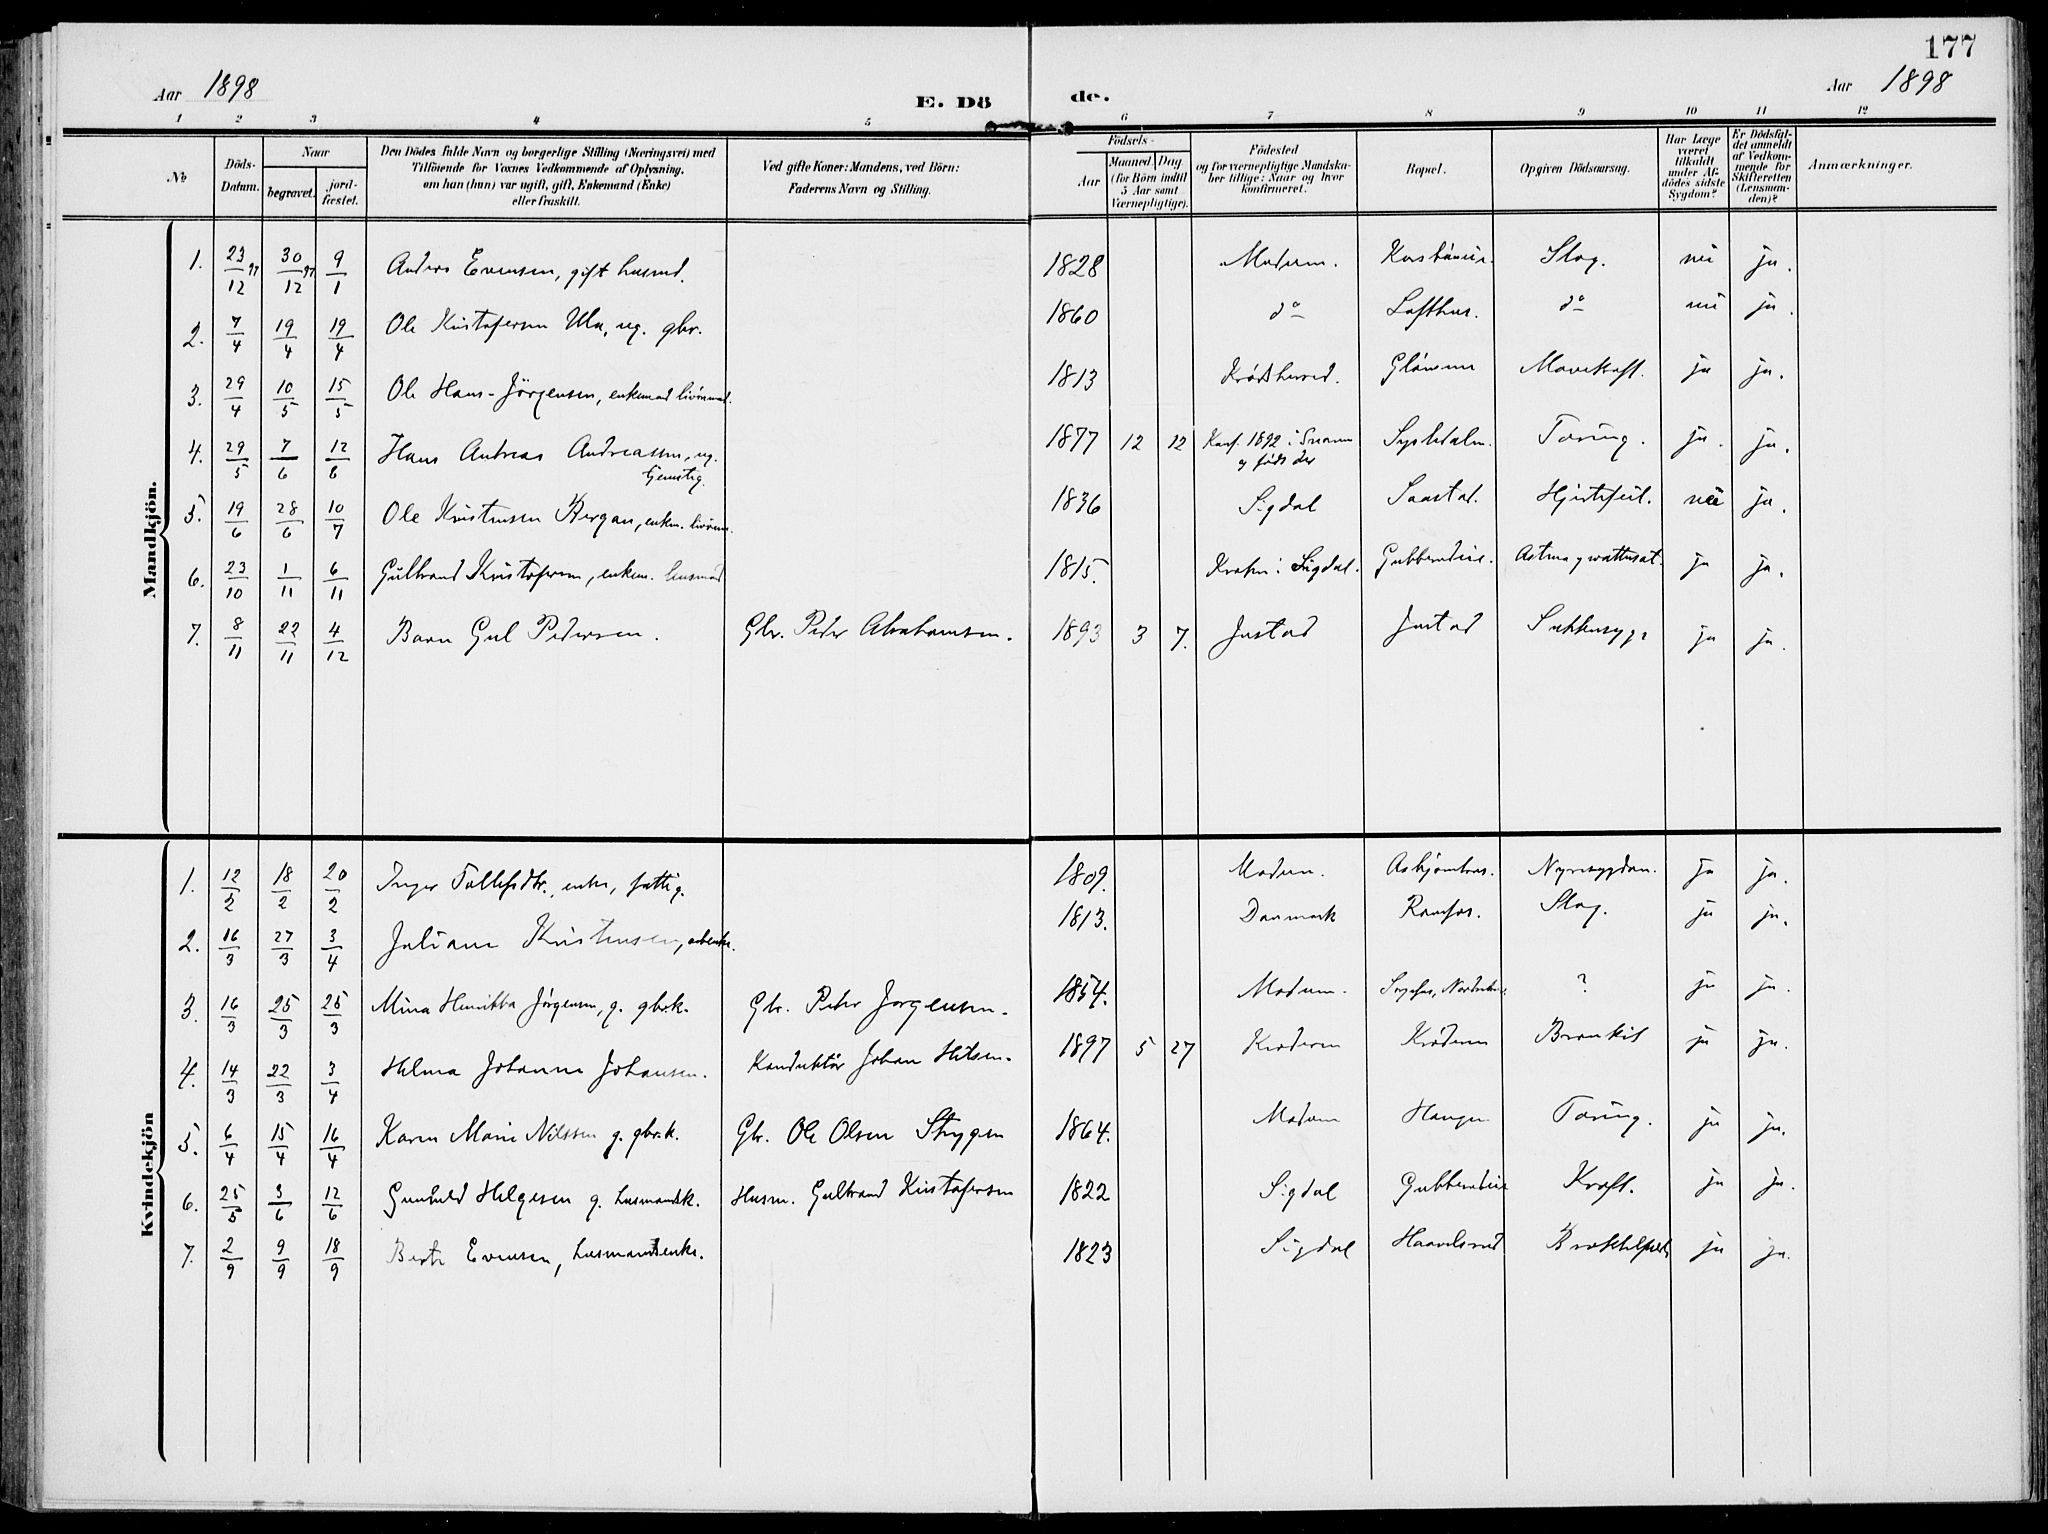 177
Aar 1898
E. Dö de.
Aar 1898
1 2 3 4 5 6 7 8 9 10 11 12
No
Döds-Datum.
Naar
begravet.
jord-fæstet.
Den Dödes fulde Navn og borgerlige Stilling (Næringsvei) med
Tilföiende for Voxnes Vedkommende af Oplysning,
om han (hun) var ugift, gift, Enkemand (Enke)
eller fraskilt.
Ved gifte Koner: Mandens, ved Börn:
Faderens Navn og Stilling.
Födsels-
Aar
Maaned. Dag.
(for Börn indtil
5 Aar samt
Værnepligtige).
Födested
og for værnepligtige Mandska-
ber tillige: Naar og hvor
konfirmeret.
Bopæl.
Opgiven Dödsaarsag.
Har Læge
været
tilkaldt
under Af-
dödes sidste
Sygdom?
Er Dödsfal-
det anmeldt
af Vedkom-
mende for
Skifteretten
(Lensman-
den)?
Anmærkninger.
Mandkjön.
1. 23/12 97 30/12 97 9/1 Anders Evensen, gift husmd. 1828 Modum. Slag. nei ja.
2. 7/4 19/4 19/4 Ole Kristofersen Ula, ug. gbr. 1860 do Lofthus. do nei ja.
3. 29/4 10/5 15/5 Ole Hans-Jörgensen, enkemad livörmd. 1813 Krödsherred. Marekraft. ja ja.
4. 29/5 7/6 12/6 Hans Andreas Andreassen, ug. 1877 12 12 Konf. 1892 i Snarum Sysledalen. Tæring. ja. ja.
tjenestg. og föds der
5. 19/6 28/6 10/7 Ole Kristensen Bergan, enkm. 1836 Sigdal Saastad. Hjertefeil. nei ja.
6. 23/10 1/11 6/11 Gulbrand Kristofersen, enkem. husmad 1815. i Sigdal. Gubberudeie. Astma og vattersot. ja ja.
7. 8/11 22/11 4/12 Barn Gul Pedersen. Gbr. Peder Abrahamsen. 1893 3 7. Justad Justad Sukkersyge ja ja.
Kvindekjön
1. 12/2 18/2 20/2 Inger Tollefsdtr. enke, fattig. 1809. Modum. Nyresygdom. ja ja.
2. 16/3 27/3 3/4 Juliane Kristensen, 1813. Danmark Ramfos. Slag. ja ja.
3. 16/3 25/3 25/3 Mina Henrikka Jörgensen, g. gbr.k. Gbr. Peter Jörgensen. 1854. Modum. ? ja ja.
4. 14/3 22/3 3/4 Helma Johanne Johansen. Konduktör Johan Hilsen. 1897 5 27 Kröderen Kröderen Bronkit ja ja.
5. 6/4 15/4 16/4 Karen Marie Nilssen g. gbr.k. Gbr. Ole Olsen Strygen 1864. Modum Haugen Tæring. ja ja.
6. 25/5 3/6 12/6 Gunhild Helgesen g. husmandsk. Husm. Gulbrand Kristofersen 1822 Sigdal Gubberudeie Kræft. ja ja.
7. 2/9 9/9 18/9 Berte Evensen, husmandsenke. 1823 Sigdal Haavelsrud ja ja.